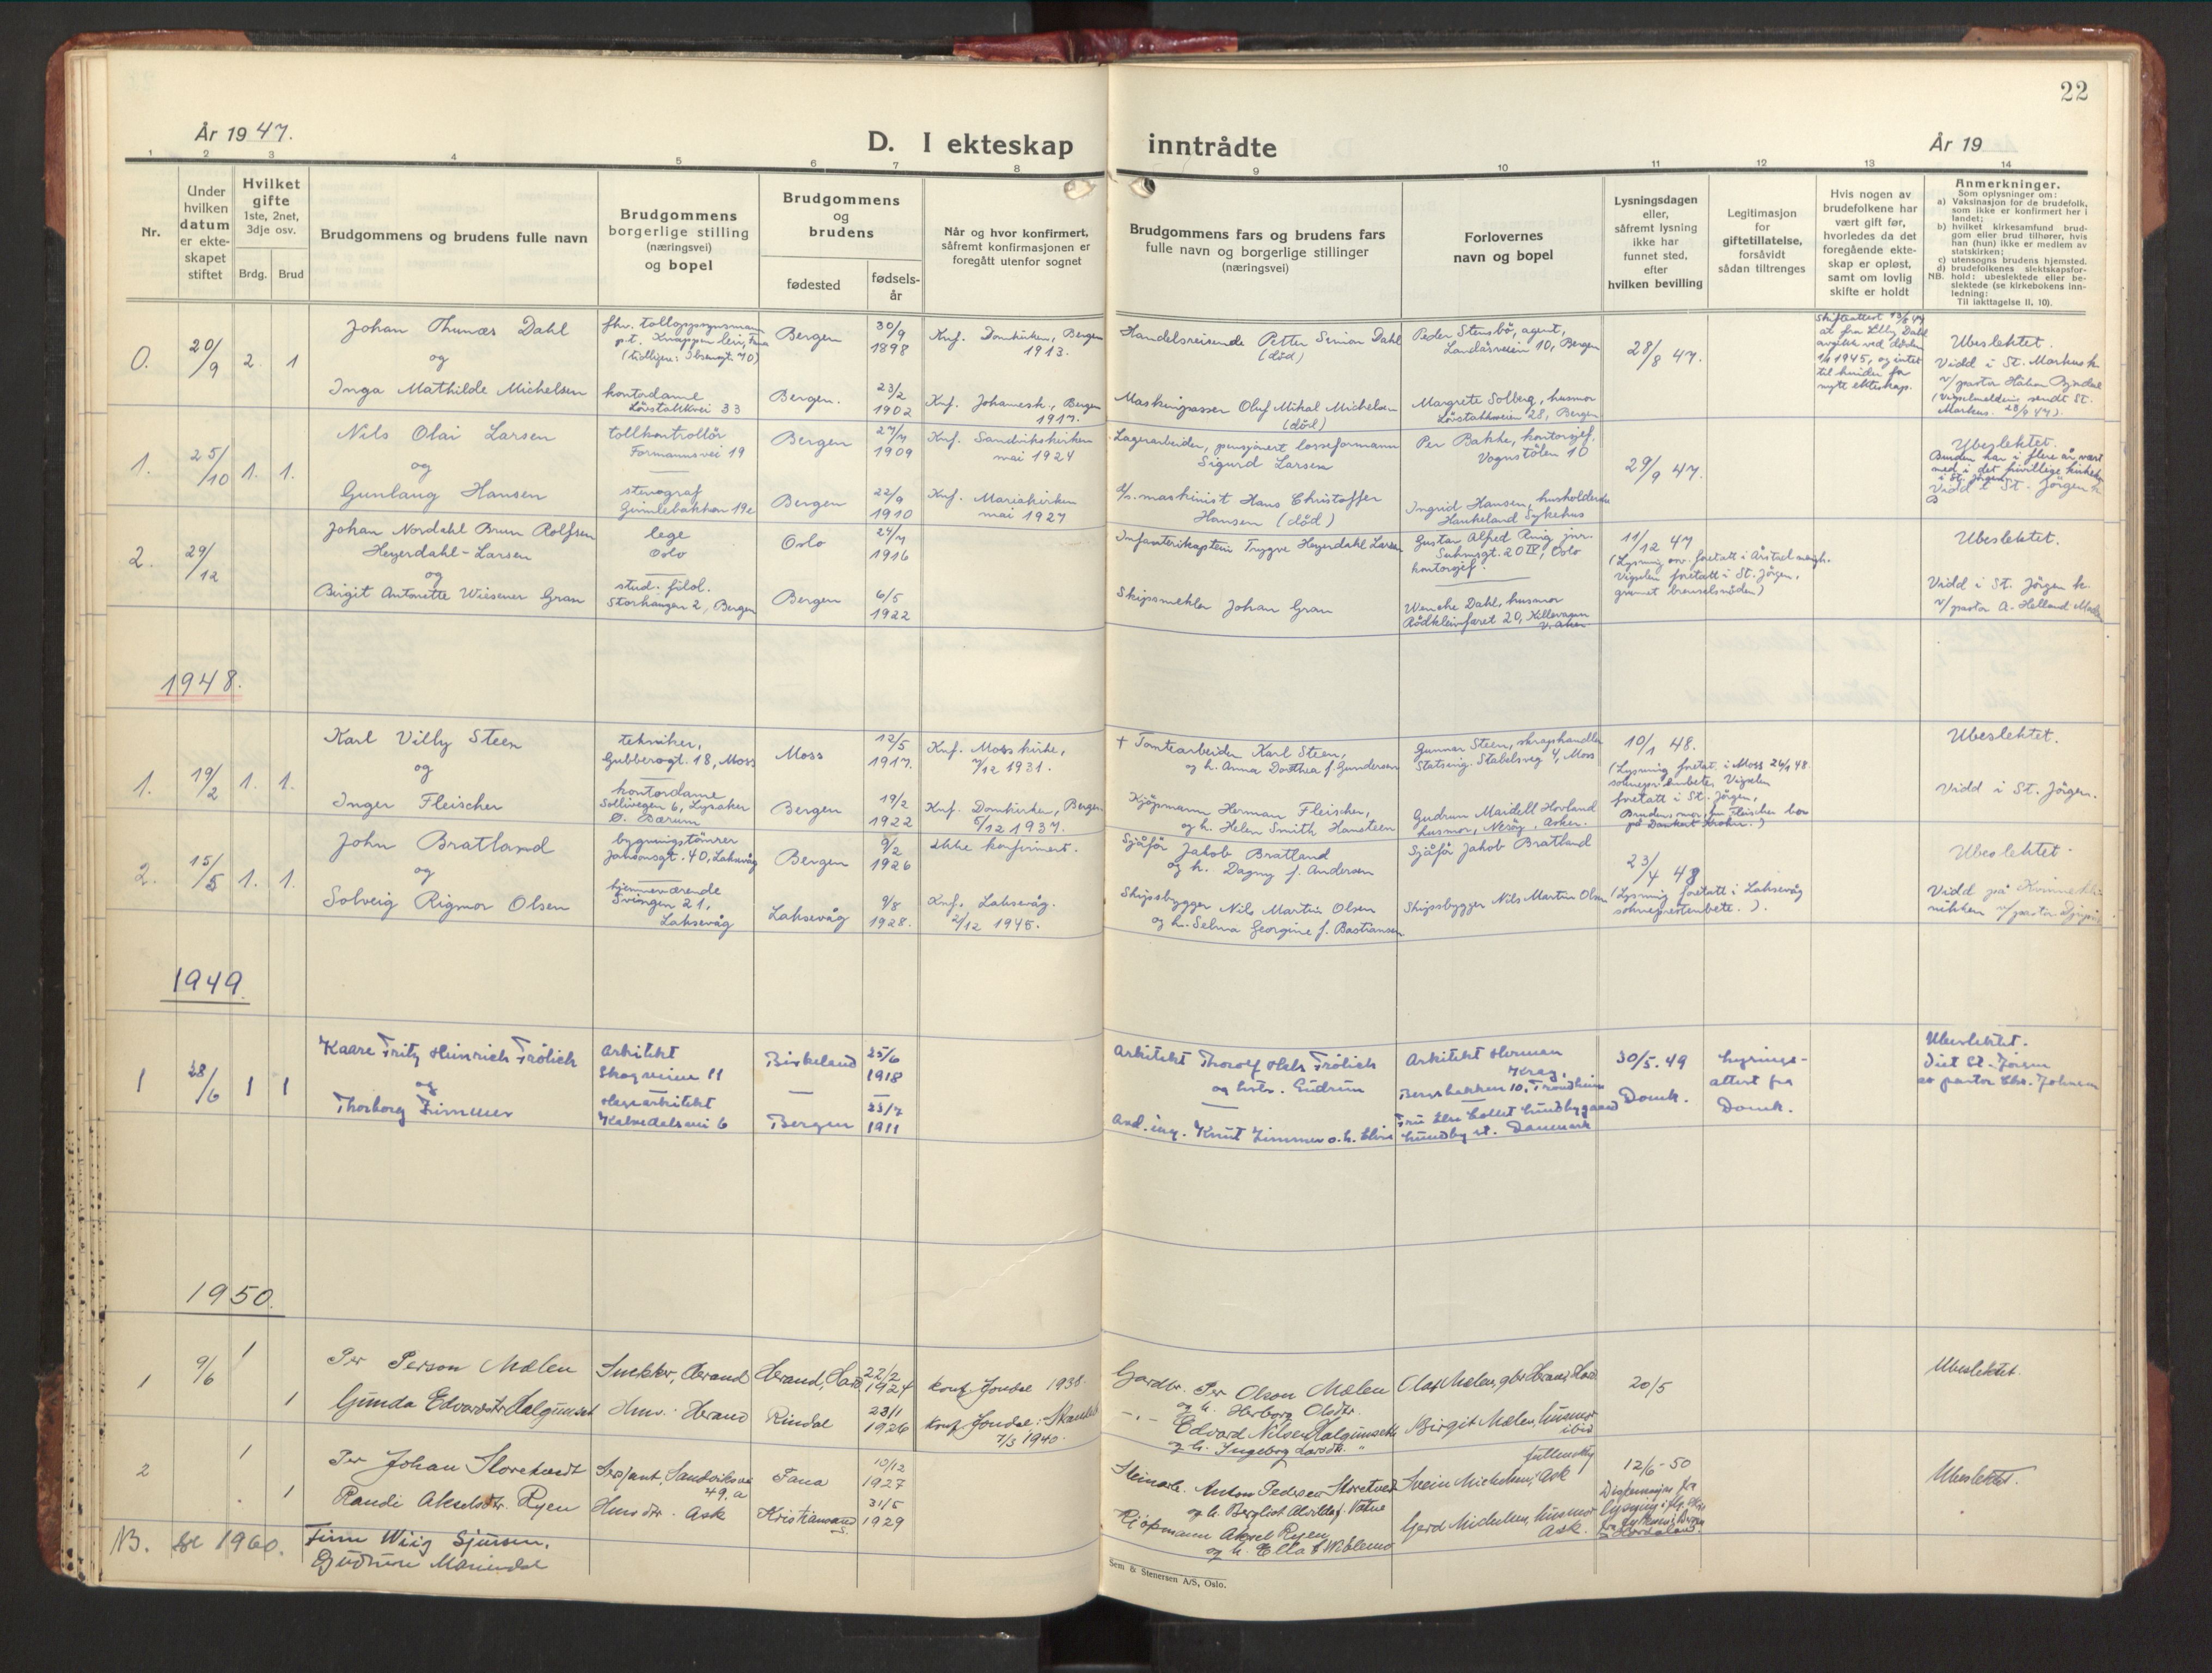 22
År 1947.
D. I ekteskap inntrådte
År 19
1 2 3 4 5 6 7 8 9 10 11 12 13 14
Nr.
Under hvilken datum er ekte-skapet stiftet
Hvilket gifte
1ste, 2net, 3dje osv.
Brdg. Brud
Brudgommens og brudens fulle navn
Brudgommens borgerlige stilling (næringsvei) og bopel
Brudgommens og brudens
fødested
fødsels-år
Når og hvor konfirmert,
såfremt konfirmasjonen er
foregått utenfor sognet
Brudgommens fars og brudens fars
fulle navn og borgerlige stillinger
(næringsvei)
Forlovernes
navn og bopel
Lysningsdagen
eller,
såfremt lysning
ikke har
funnet sted,
efter
hvilken bevilling
Legitimasjon
for
giftetillatelse,
forsåvidt
sådan tiltrenges
Hvis nogen av
brudefolkene har
vært gift før,
hvorledes da det
foregående ekte-
skap er opløst,
samt om lovlig
skifte er holdt
Anmerkninger.
Som oplysninger om:
a) Vaksinasjon for de brudefolk,
som ikke er konfirmert her i
landet;
b) hvilket kirkesamfund brud-
gom eller brud tilhører, hvis
han (hun) ikke er medlem av
statskirken;
c) utensogns brudens hjemsted.
d) brudefolkenes slektskapsfor-
NB. hold: ubeslektede eller be-
slektede (se kirkebokens inn-
ledning:
Til iakttagelse II, 10).
0. 20/9 2. 1
Johan Thunæs Dahl
og
Inga Mathilde Michelsen
(tidligere: Ibsensgt. 70)
kontordame
Løvstakkvei 33
Bergen 30/9 1898
Bergen. 23/2 1902
Knf. Domkirken, Bergen
1913.
Knf. Johannesk., Bergen
1917.
Handelsreisende Petter Simon Dahl
(død)
Maskinpasser Oluf Mikal Michelsen
(død)
Peder Stensbø, agent,
Landåsveien 10, Bergen
Margrete Solberg, husmor
Løvstakkveien 28, Bergen
28/8 47.
Skifteattest 13/8 47
at fra Lilly Dahl
avgikk ved døden
1945, og intet
til hinder for
nytt ekteskap.
Ubeslektet.
Vidd i St. Markus k.
v/ pastor Håkon
Markus. 28/9 47).
1. 25/10 1. 1.
Nils Olai Larsen
og
Gunlaug Hansen
tollkontrollør
Formannsvei 19
stenograf
Gimlebakken 19c
Bergen 27/7 1909
Bergen 22/9 1910
Knf. Sandvikskirken
mai 1924
Knf. Mariakirken
mai 1927
Lagerarbeider, pensjonert losseformann
Sigurd Larsen
d/s. maskinist Hans Christoffer
Hansen (død)
Per Bakke, kontorsjef.
Vognstølen 10
Ingrid Hansen, husholderske
Haukeland Sykehus
29/9 47.
Ubeslektet.
Bruden har i flere år vært
med i det frivillige kirkek.
i St. Jørgen.
Vidd i St. Jørgen k.
2. 29/12
Johan Nordahl Brun Rolfsen
Heyerdahl-Larsen
og
Birgit Antonette Wiesener Gran
lege
Oslo
stud. filol.
Storhaugen 2, Bergen
Oslo 24/7 1916
Bergen 6/5 1922
Infanterikaptein Trygve Heyerdahl Larsen
Skipsmekler Johan Gran
Gustav Alfred Ring jnr.
Suhmsgt. 20 IV, Oslo
kontorsjef.
Wenche Dahl, husmor
Rødkleivfaret 20,
V. Aker
11/12 47
(Lysning foretatt i Årstad menigh.
Vigselen foretatt i St. Jørgen,
grunnet brenselsnøden)
Ubeslektet.
Vidd i St. Jørgen k.
v/ pastor A. Helland
1948.
1. 19/2 1. 1.
Karl Villy Steen
og
Inger Fleischer
tekniker,
Gubberogt. 18, Moss
kontordame
Sollivegen 6, Lysaker
Ø. Bærum
Moss 12/5 1917.
Bergen 19/2 1922
Knf. Moss kirke,
/12 1931.
Knf. Domkirken, Bergen
5/12 1937.
† Tomtearbeider Karl Steen,
og h. Anna Dorthea f. Gundersen
Kjøpmann Herman Fleischer,
og h. Helen Smith Hansteen
Gunnar Steen, skraphandler
Statsing. Stabelsveg 4, Moss
Gudrun Maidell Hovland
husmor, Nesøy, Asker.
10/1 48.
(Lysning foretat i Moss
Vigselen
foretatt i St. Jørgen,
Brudens mor, fru Fleischer bor
på Danckert Krohn.)
Ubeslektet.
Vidd i St. Jørgen.
2. 15/5 1. 1.
John Bratland
og
Solveig Rigmor Olsen
bygningstømrer
Jansonsgt. 40, Laksevåg
hjemmeværende
Svingen 21,
Laksevåg
Bergen 9/2 1926
Laksevåg 9/8 1928.
Ikke konfirmert.
Knf. Laksevåg.
2/12 1945.
Sjåfør Jakob Bratland
og h. Dagny f. Andersen
Skipsbygger Nils Martin Olsen
og h. Selma Georgine f. Bastiansen
Sjåfør Jakob Bratland
Skipsbygger Nils Martin Olsen
23/4 48
(Lysning foretatt i Laksevåg
sokneprestembete.).
Ubeslektet.
Vidd på Kvinneklinikken v/ pastor
1949.
1 28/6 1 1
Kaare Fritz Heinrich Frölich
og
Thorborg Zimmer
Arkitekt
Skogveien 11
Hagearkitekt
Kalvedalsvei 6
Birkeland 25/6 1918
Bergen 1911
Arkitekt Thorolf Hals Frölich
og hstr. Gudrun
Avd. ing. Knut Zimmer o. h.
Arkitekt Herman
Krag,
Bergsbakken 10, Trondheim
Fru Else Collet
Lundby st. Danmark
30/5.49
Domk.
Lysnings-
attest fra
Domk.
Ubeslektet.
Viet St. Jørgen
av pastor Chr. Johnsen
1950.
1 9/6 1 1
Per Person Mælen
Gunda Edvardsdtr Halgunset
Snekker, Herand
Husv. Herand
Herand, Hard 22/2 1924
Rindal 23/1 1926
konf. Jondal 1938.
konf. Jondal:
7/3 1940.
Gardbr. Per Olson Mælen
og h. Herborg Olsdtr.
Edvard Nilsen Halgunseth
og h. Ingeborg Larsdtr.
Olaf Mælen, gbr Herand, Hard
Birgit Mælen, husmor
ibid
20/5
Ubeslektet.
2 1 1
Per Johan Storetvedt
Randi Akselsdtr. Ryen
Sersjant, Sandviksvei
49, a
Husdtr. Ask
Fana 13/12 1927
Kristiansand S. 31/5 1929
Anton Pedersen Storetvedt
og h. Bergliot Alvilda f. Vatne
Kjøpmann Aksel Ryen
og h. Ella f. Wiblemo
Svein Michelsen, Ask
Gerd Michelsen, husmor
Ask.
12/6-50
Dispensasjon fra
lysning
Ubeslektet.
NB. Se 1960. Finn Wiig Sjursen,
Gudrun
Sem & Stenersen A/S, Oslo.